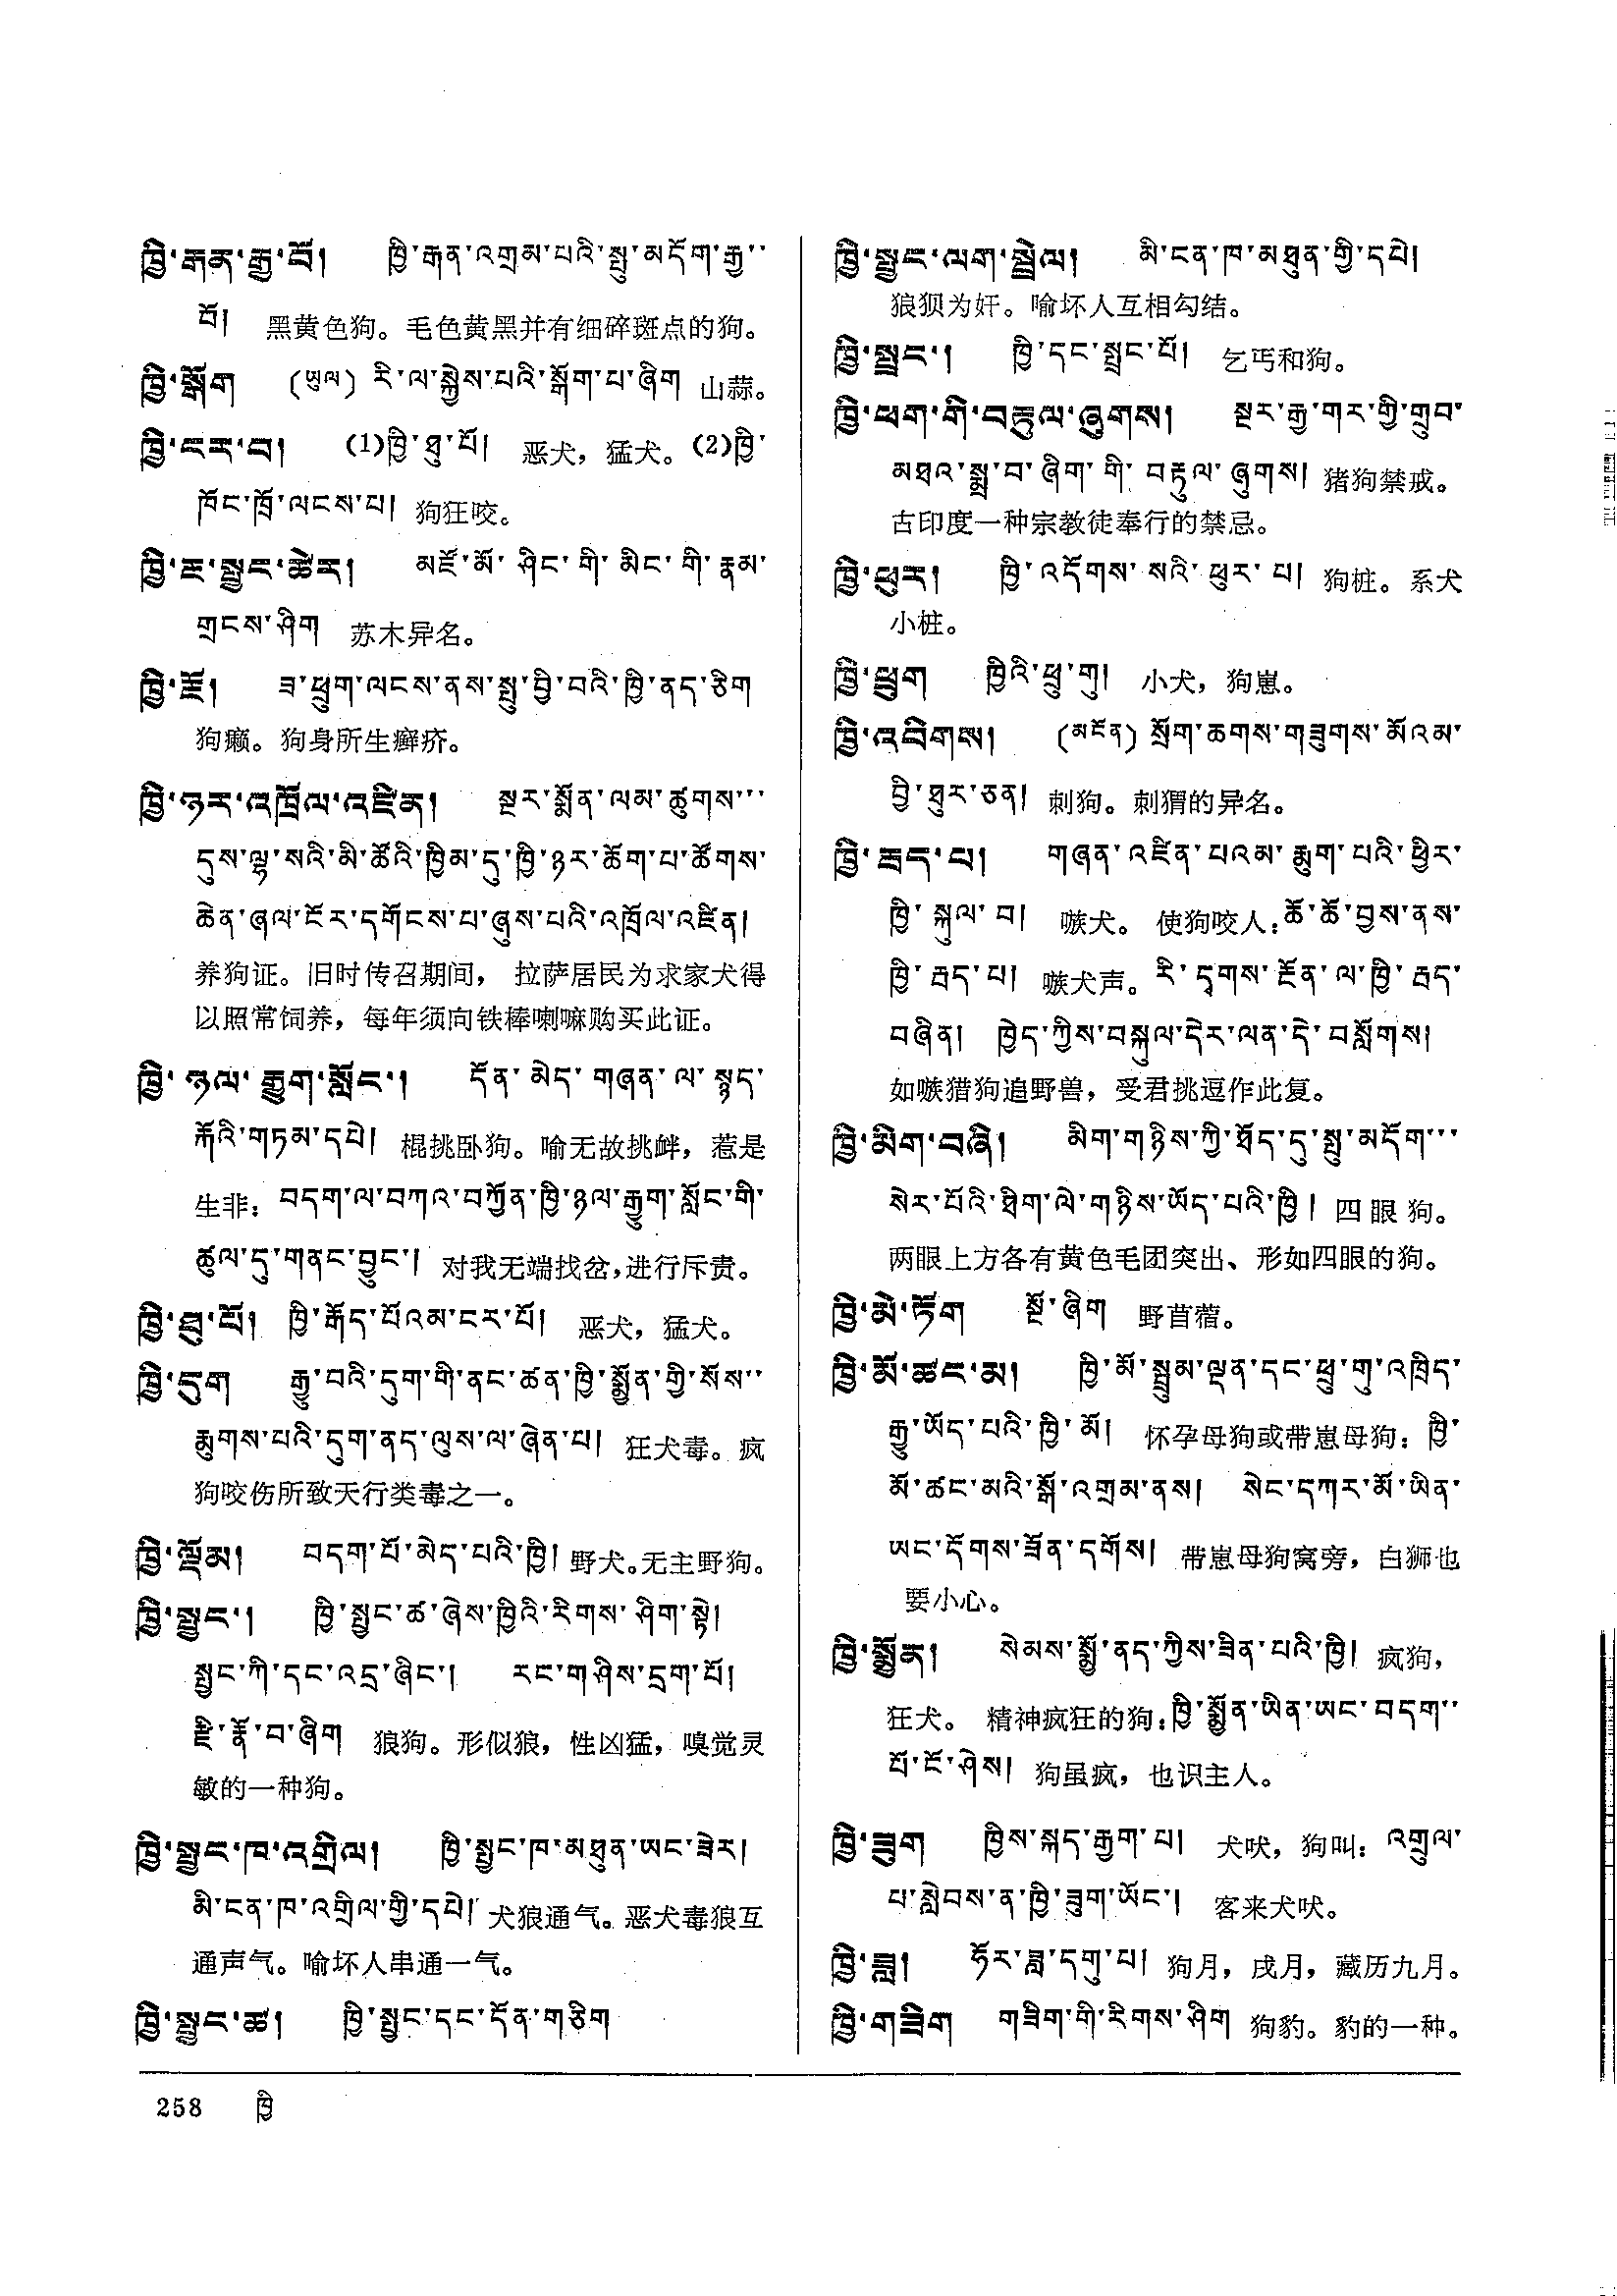 ཁྱི་རྒན་རྒྱ་བོ། ཁྱི་རྒན་འགྲམ་པའི་སྤུ་མདོག་རྒྱ་་
བོ། 黑黄色狗。毛色黄黑并有细碎斑点的狗。
ཁྱི་སྒོག (ཡུལ) རི་ལ་སྐྱེས་པའི་སྒོག་པ་ཞིག 山蒜。
ཁྱི་ངར་བ། (1)ཁྱི་ཐུ་པོ། 恶犬，猛犬。(2)ཁྱི་
ཁོང་ཁྲོ་ལངས་པ། 狗狂咬。
ཁྱི་ཇ་སྤྱང་ཚེར། མཛོ་མོ་ཤིང་གི་མིང་གི་རྣམ་
གྲངས་ཤིག 苏木异名。
ཁྱི་ཇོ། ཟ་ཕྲུག་ལངས་ནས་སྤུ་བྱི་བའི་ཁྱི་ནད་ཅིག
狗癞。狗身所生癣疥。
ཁྱི་ཉར་འཁྲོལ་འཛིན། སྔར་སྨོན་ལམ་ཚུགས་་་
དུས་ལྷ་སའི་མི་ཚོའི་ཁྱིམ་དུ་ཁྱི་ཉར་ཆོག་པ་ཚོགས་
ཆེན་ཞལ་ངོར་དགོངས་པ་ཞུས་པའི་འཁྲོལ་འཛིན།
养狗证。旧时传召期间， 拉萨居民为求家犬得
以照常饲养，每年须向铁棒喇嘛购买此证。
ཁྱི་ཉལ་རྒྱུག་སློང་། དོན་མེད་གཞན་ལ་སྙད་
རྐོའི་གཏམ་དཔེ། 棍挑卧狗。喻无故挑衅，惹是
生非：བདག་ལ་བཀའ་བཀྱོན་ཁྱི་ཉལ་རྒྱུག་སློང་གི་
ཚུལ་དུ་གནང་བྱུང་། 对我无端找岔,进行斥责。
ཁྱི་ཐུ་པོ། ཁྱི་རྒོད་པོའམ་ངར་པོ། 恶犬，猛犬。
ཁྱི་དུག རྒྱུ་བའི་དུག་གི་ནང་ཚན་ཁྱི་སྨྱོན་གྱི་སོས་་
རྨུགས་པའི་དུག་ནད་ལུས་ལ་ཞེན་པ། 狂犬毒。疯
狗咬伤所致天行类毒之一。
ཁྱི་ལྡོམ། བདག་པོ་མེད་པའི་ཁྱི། 野犬。无主野狗。
ཁྱི་སྤྱང་། ཁྱི་སྤྱང་ཚ་ཞེས་ཁྱིའི་རིགས་ཤིག་སྟེ།
སྤྱང་ཀི་དང་འདྲ་ཞིང་། རང་གཤིས་དྲག་པོ།
ཇི་རྣོ་བ་ཞིག 狼狗。形似狼，性凶猛，嗅觉灵
敏的一种狗。
ཁྱི་སྤྱང་ཁ་འགྲིལ། ཁྱི་སྤྱང་ཁ་མཐུན་ཡང་ཟེར།
མི་ངན་ཁ་འགྲིལ་གྱི་དཔེ། 犬狼通气。恶犬毒狼互
通声气。喻坏人串通一气。
ཁྱི་སྤྱང་ཚ། ཁྱི་སྤྱང་དང་དོན་གཅིག
ཁྱི་སྤྱང་ལག་སྦྲེལ། མི་ངན་ཁ་མཐུན་གྱི་དཔེ།
狼狈为奸。喻坏人互相勾结。
ཁྱི་སྤྲང་། ཁྱི་དང་སྤྲང་པོ། 乞丐和狗。
ཁྱི་ཕག་གི་བརྟུལ་ཞུགས། སྔར་རྒྱ་གར་གྱི་གྲུབ་
མཐའ་སྨྲ་བ་ཞིག་གི་བརྟུལ་ཞུགས། 猪狗禁戒。
古印度一种宗教徒奉行的禁忌。
ཁྱི་ཕུར། ཁྱི་འདོགས་སའི་ཕུར་པ། 狗桩。系犬
小桩。
ཁྱི་ཕྲུག ཁྱིའི་ཕྲུ་གུ། 小犬，狗崽。
ཁྱི་འབིགས། (མངོན) སྲོག་ཆགས་གཟུགས་མོའམ་
བྱི་ཐུར་ཅན། 刺狗。刺猬的异名。
ཁྱི་རྦད་པ། གཞན་འཛིན་པའམ་རྨུག་པའི་ཕྱིར་
ཁྱི་སྐུལ་བ། 嗾犬。 使狗咬人：ཆོ་ཆོ་བྱས་ནས་
ཁྱི་རྦད་པ། 嗾犬声。རི་དྭགས་རྔོན་ལ་ཁྱི་རྦད་
བཞིན། ཁྱེད་ཀྱིས་བསྐུལ་དེར་ལན་དེ་བསློགས།
如嗾猎狗追野兽，受君挑逗作此复。
ཁྱི་མིག་བཞི། མིག་གཉིས་ཀྱི་ཐོད་དུ་སྤུ་མདོག་་་
སེར་པོའི་ཐིག་ལེ་གཉིས་ཡོད་པའི་ཁྱི། 四眼狗。
两眼上方各有黄色毛团突出、形如四眼的狗。
ཁྱི་མེ་ཏོག སྔོ་ཞིག 野苜蓿。
ཁྱི་མོ་ཚང་མ། ཁྱི་མོ་སྦྲུམ་ལྡན་དང་ཕྲུ་གུ་འཁྲིད་
རྒྱུ་ཡོད་པའི་ཁྱི་མོ། 怀孕母狗或带崽母狗：ཁྱི་
མོ་ཚང་མའི་སྒོ་འགྲམ་ནས། སེང་དཀར་མོ་ཡིན་
ཡང་དོགས་ཟོན་དགོས། 带崽母狗窝旁，白狮也
要小心。
ཁྱི་སྨྱོན། སེམས་སྨྱོ་ནད་ཀྱིས་ཟིན་པའི་ཁྱི། 疯狗，
狂犬。 精神疯狂的狗：ཁྱི་སྨྱོན་ཡིན་ཡང་བདག་་
པོ་ངོ་ཤེས། 狗虽疯，也识主人。
ཁྱི་ཟུག ཁྱིས་སྐད་རྒྱག་པ། 犬吠，狗叫：འགྲུལ་
པ་སླེབས་ན་ཁྱི་ཟུག་ཡོང་། 客来犬吠。
ཁྱི་ཟླ། ཧོར་ཟླ་དགུ་པ། 狗月，戌月，藏历九月。
ཁྱི་གཟིག གཟིག་གི་རིགས་ཤིག 狗豹。豹的一种。
258 ཁྱི